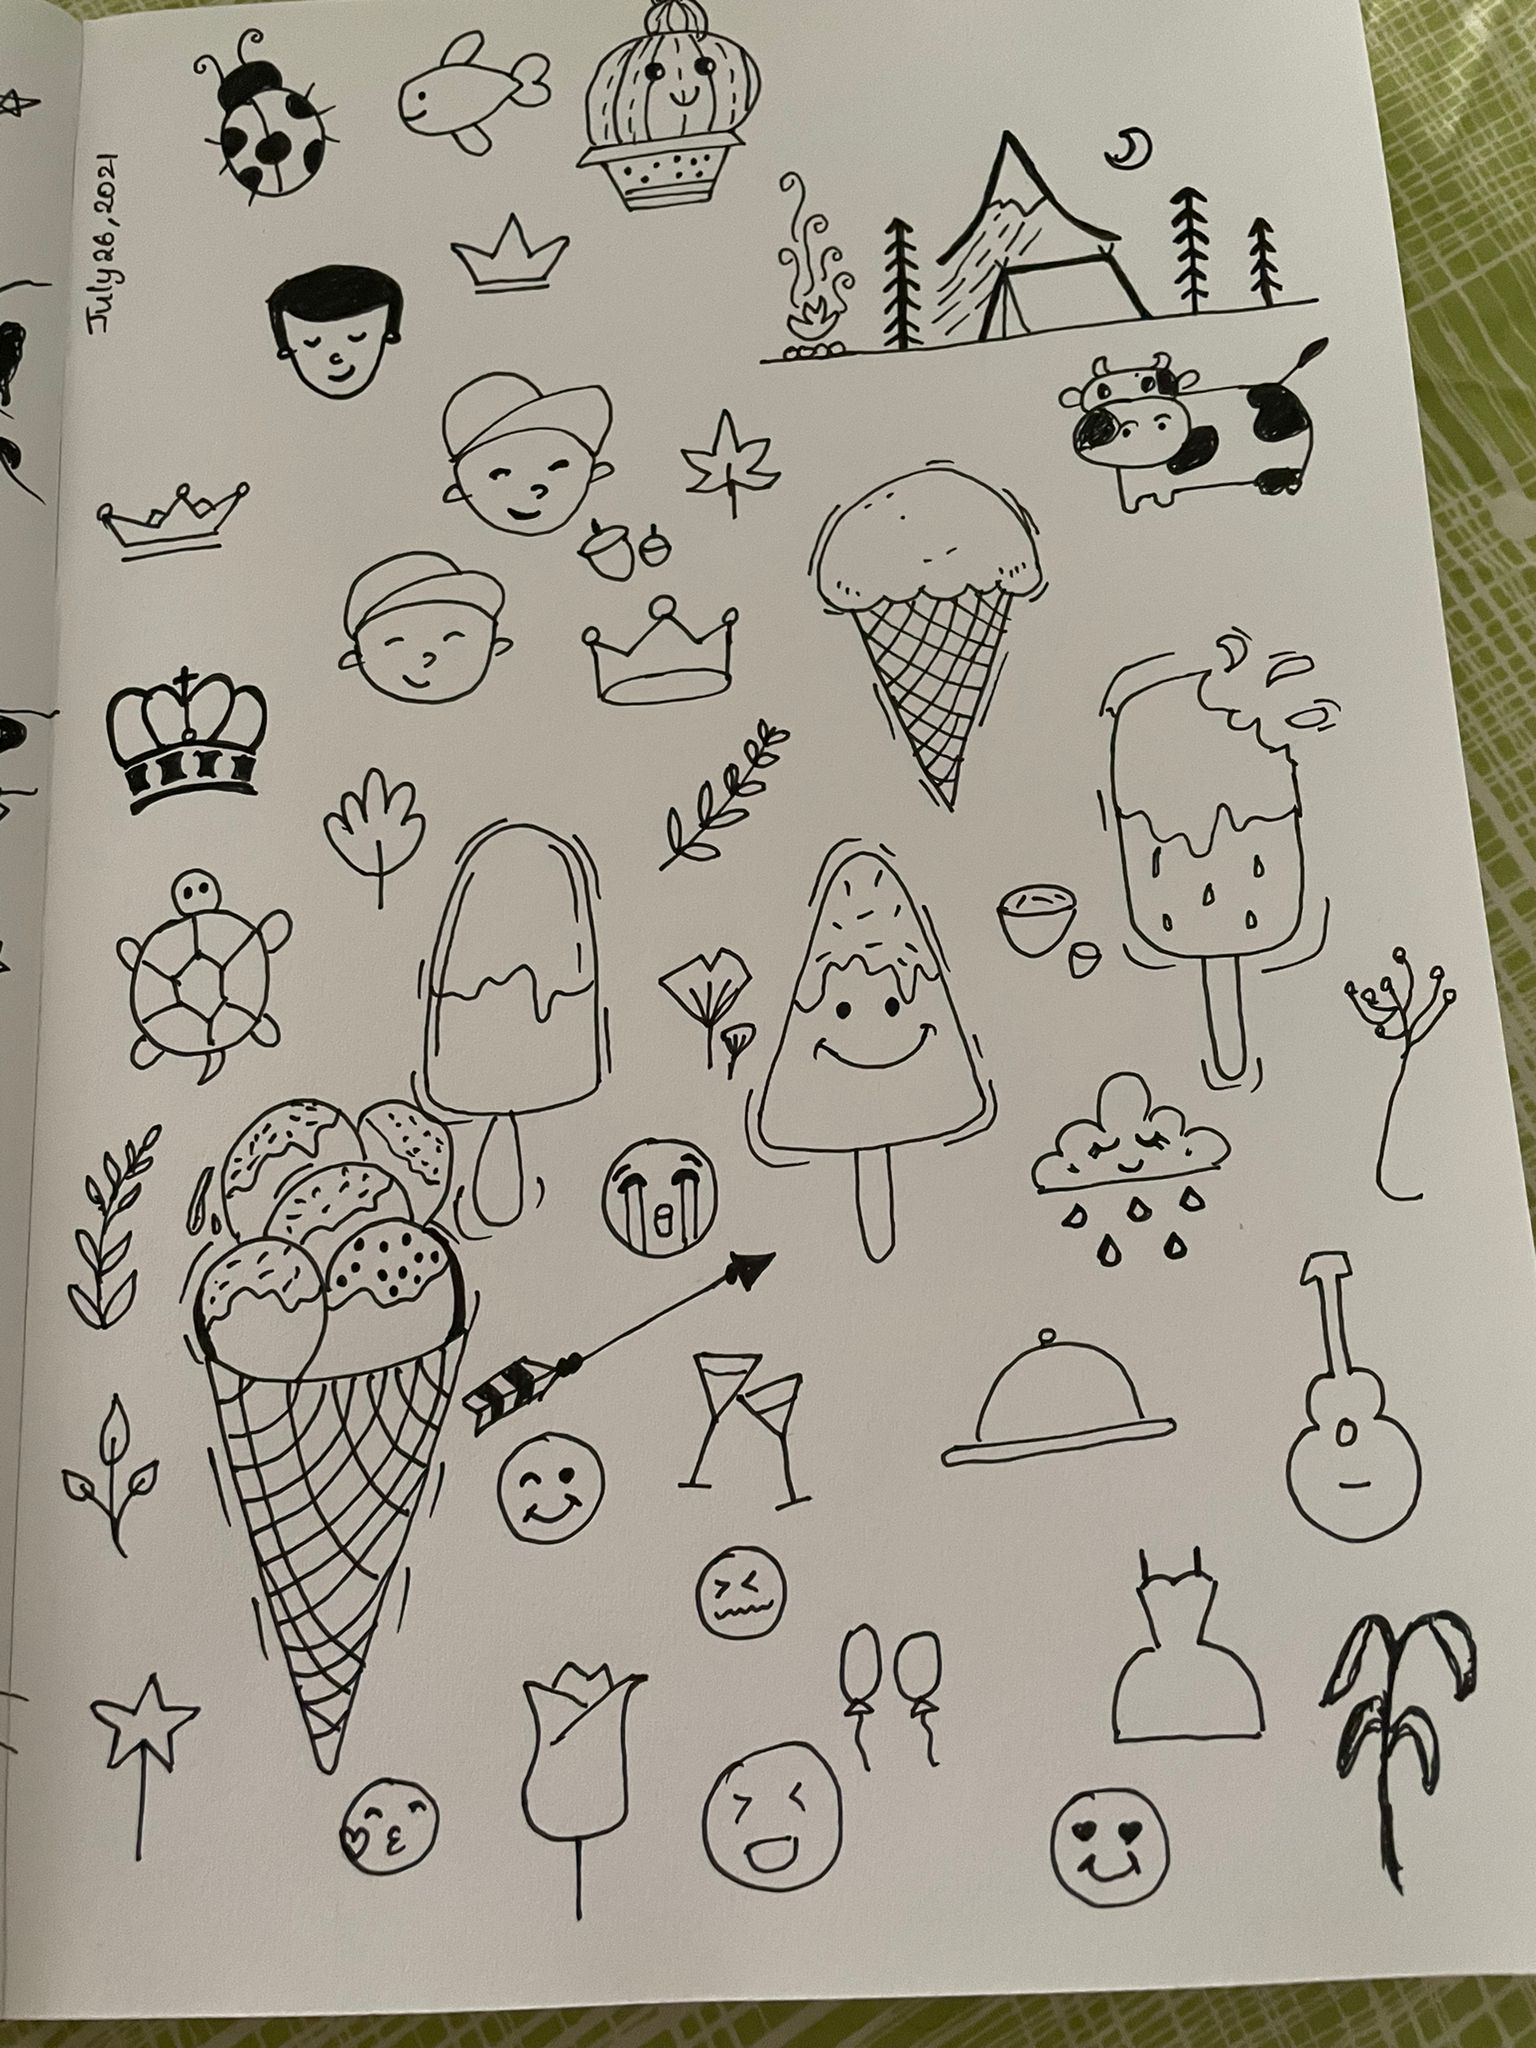 July 26, 2021